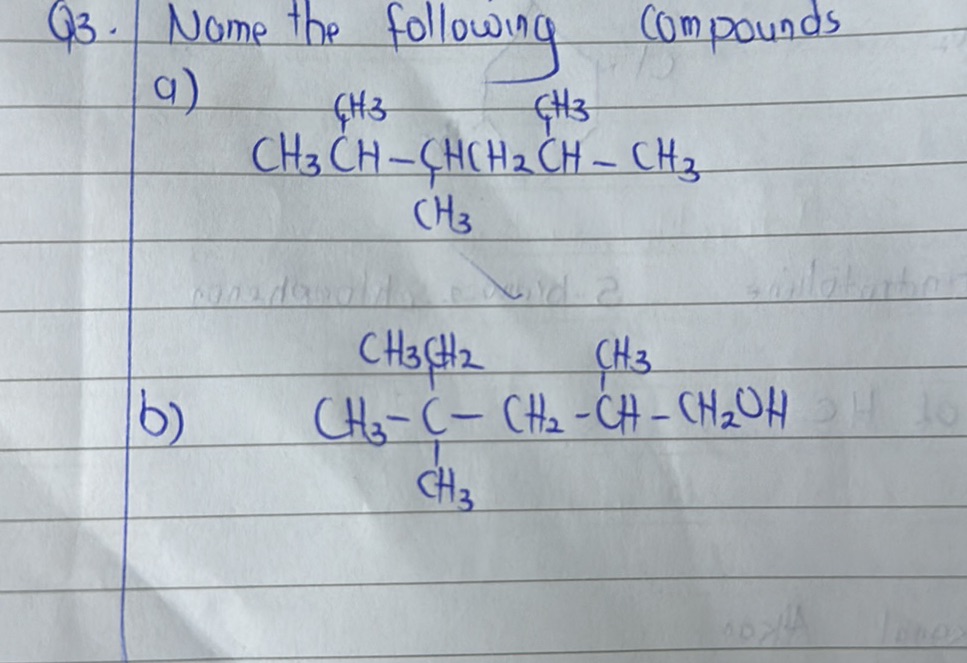 Q3. Name the following compounds
a)
CH3 CH3
CH3 CH - CHCH2 CH - CH3
CH3
CH3CH2 CH3
b) CH3 - C - CH2 - CH - CH2OH
CH3